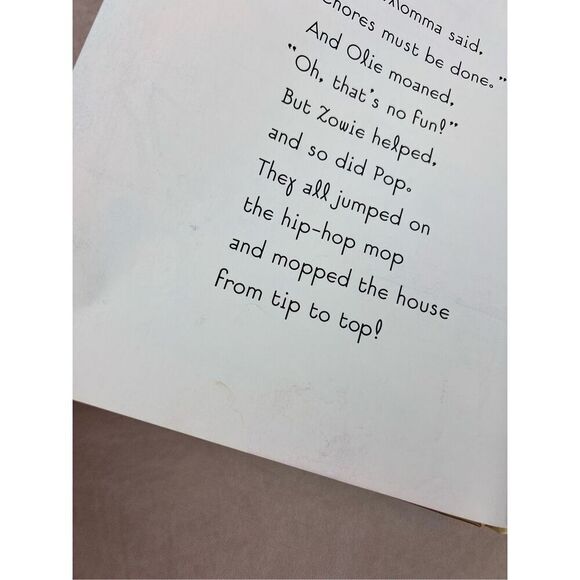 Momma said,
chores must be done."
And Olie moaned,
"Oh, that's no fun!"
But Zowie helped,
and so did Pop.
They all jumped on
the hip-hop mop
and mopped the house
from tip to top!